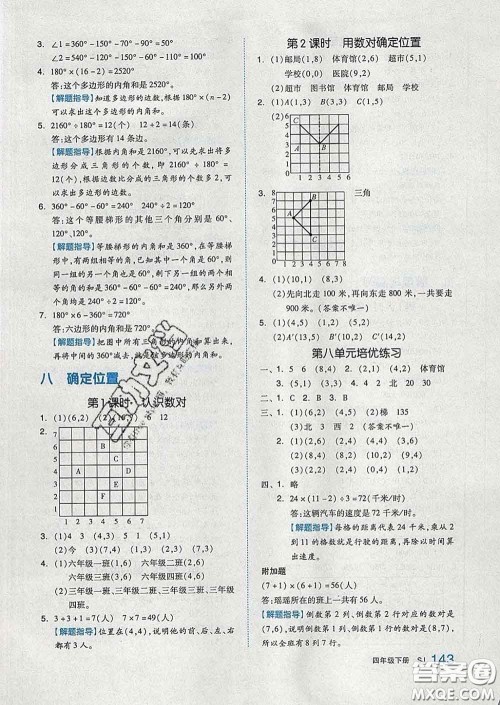 3. ∠1=360°-150°-70°-60°=80°
4. 180°×(16-2)=2520°
答:这个多边形的内角和是2520°。
【解题指导】知道多边形的边数,根据180°×(n-2)
可以求出这个多边形的内角和。
5. 2160°÷180°=12(个) 12+2=14(条)
答:这个多边形有14条边。
【解题指导】根据2160°÷180°,可以先求出将多
边形分成三角形的个数,即2160°÷180°=12(个),
多边形的边数比分成的三角形的个数多2,可
以求出多边形的边数。
6. 360°-60°-60°=240° 240°÷2=120°
答:这个等腰梯形的其他三个角分别是60°,
120°,120°。
【解题指导】等腰梯形的内角和是360°,在等腰梯
形中,有两组相等的角,已知其中一个角是60°,则
同一组的另一个内角也是60°,剩下另一组两个相
等的角的和是360°-60°-60°=240°,那么另外两
个角分别是240°÷2=120°。
7. 180°×6-360°=720°
答:六边形的内角和是720°。
【解题指导】把图中所有三角形的内角和算出来,
再将中间的360°减去,就是六边形的内角和。
八 确定位置
第1课时 认识数对
1. (1)(6,2) (2)(16,7) 6 12
2.
7
6
5
4
3
2
1
1 2 3 4 5 6 7
3. (1)(4) (3,1) (6,5)
(2)今 (3,2) (7,4) (6,6)
4. (1)六年级一班 六年级四班 六年级二班
六年级三班
(2)三年级一班,三年级二班,三年级三班,三年
级四班。
5. 3+3+1=7(人) 7×7=49(人)
【解题指导】位置在(4,4),说明他前、后、左、右
都有3人。
第2课时 用数对确定位置
1. (1)邮局(1,8) 体育馆(2,6) 超市(5,1)
学校(0,0) 医院(9,2)
(2)超市 图书馆 体育馆 邮局 学校
2. (1)A(1,3) B(3,3)
(2)
6
5
4
3
2
1
0 1 2 3 4 5 6
C
A
B
3.
三角
8
7
6
5
4
3
2
1
0 1 2 3 4 5 6 7 8
A
B
C
4. (1)(7,4) (10,1) (8,3)
(2)先向北走100米,再向东走800米,一共要走
900米。(答案不唯一)
5. (1)A(1,2) B(6,2) C(14,2)
第八单元培优练习
一、1. 5 6 (8,4) 2. (4,2) 体育馆
3. (6,3) (3,6) 4. 11 2 北 20 30
二、1. × 2. √ 3. × 4. ×
三、1. (1)(5,5) (8,2) (10,6)
2. (9,3) (8,2)(答案不唯一)
四、1. 略
2. 24×(11-2)÷3=72(千米/时)
答:这辆汽车的速度是72千米/时。
【解题指导】每格的距离代表24千米,乘从2
到11的格数就是汽车行驶的距离,再除以时间
算出速度。
附加题
(7+1)×(6+1)=56(人)
答:瑶瑶所在的班级上一共有56人。
【解题指导】倒数第2列、倒数第2行对应的数对是
(7,6),说明倒数第1列、倒数第1行的数对是(8,7),
所以有8列7行。
四年级下册 SJ 143
答案圈
MXQE.COM